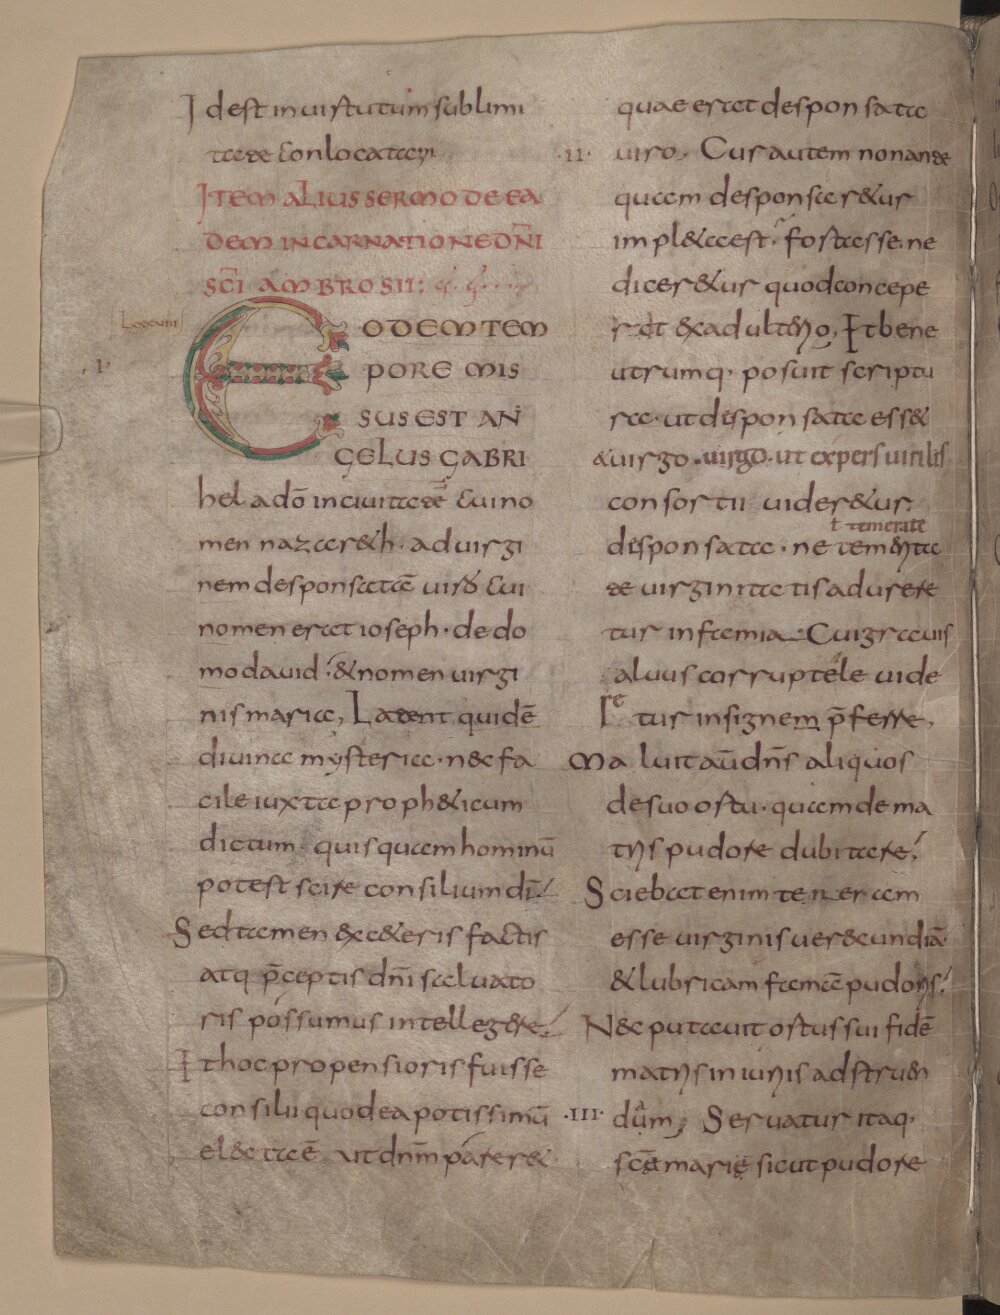 Id est in uirtutum sublimi
tate conlocatam
ITEM ALIUS SERMO DE EA
DEM INCARNATIONE DNI
SCI AMBROSII:
Lectio
·I·
EODEM TEM
PORE MIS
SUS EST AN
GELUS GABRI
hel a dō in ciuitatē cui no
men nazareth · ad uirgi
nem desponsatam uiro cui
nomen erat ioseph · de do
mo dauid · & nomen uirgi
nis mariae, Latent quidē
diuina mysteria · nec fa
cile iuxta propheticum
dictum · quisquam hominū
potest scire consilium dī
Sed tamen ex ceteris factis
atq p̄ceptis dn̄i saluato
ris possumus intellegere
Et hoc propensioris fuisse
consilii quod ea potissimū
electa ē ut dn̄m parer&
quae erat desponsata
·II· uiro, Cur autem non ante
quam desponsaretur
impleta est · fortasse ne
diceretur quod concepe
rat ex adulterio, Et bene
utrumq · posuit scriptu
ra · ut disponsata ess&
& uirgo · uirgo · ut expers uirilis
consortii uideretur
ł temerate
disponsata · ne temerita
te uirginitatis adurere
tur infamia Cui grauis
aluus corruptele uide
re
tur insignem p̄ferre,
Maluit aū dn̄s aliquos
de suo ortu · quam de ma
tris pudore dubitare
Sciebat enim teneram
esse uirginis uerecundiā
& lubricam famam pudoris
Nec putauit ortus sui fidē
matris iniuriis adstruen
·III· dum, Seruatur itaq ·
scē marie sicut pudore